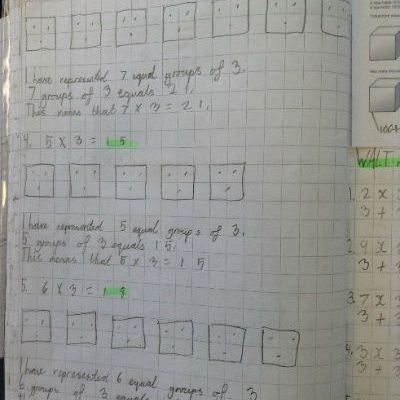 I have represented 7 equal groups of 3.
7 groups of 3 equals 21.
This means that 7 x 3 = 21.
4. 5 x 3 = 15
I have represented 5 equal groups of 3.
5 groups of 3 equals 15.
This means that 5 x 3 = 15
5. 6 x 3 = 18
I have represented 6 equal groups of 3
6 groups of 3 equals
WALT
1. 2 x
3 +
2. 9 x
3 +
3. 7 x
3 +
4. 3 x
3 +